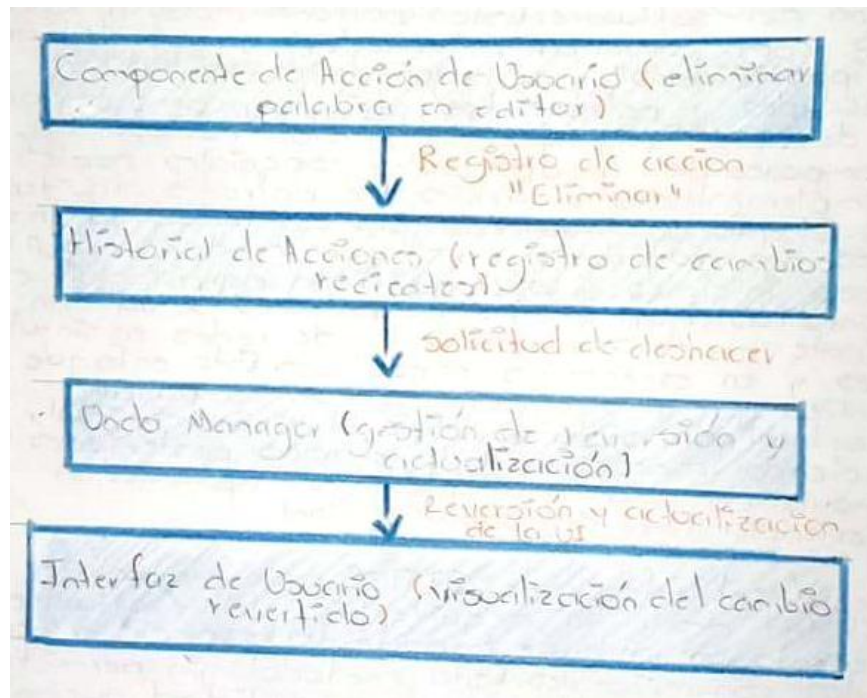 Componente de Acción de Usuario (eliminar
palabra en editor)
Registro de acción
"Eliminar"
Historial de Acciones (registro de cambios
recientes)
solicitud de deshacer
Undo Manager (gestión de reversión y
actualización)
Reversión y actualización
de la UI
Interfaz de Usuario (visualización del cambio
revertido)